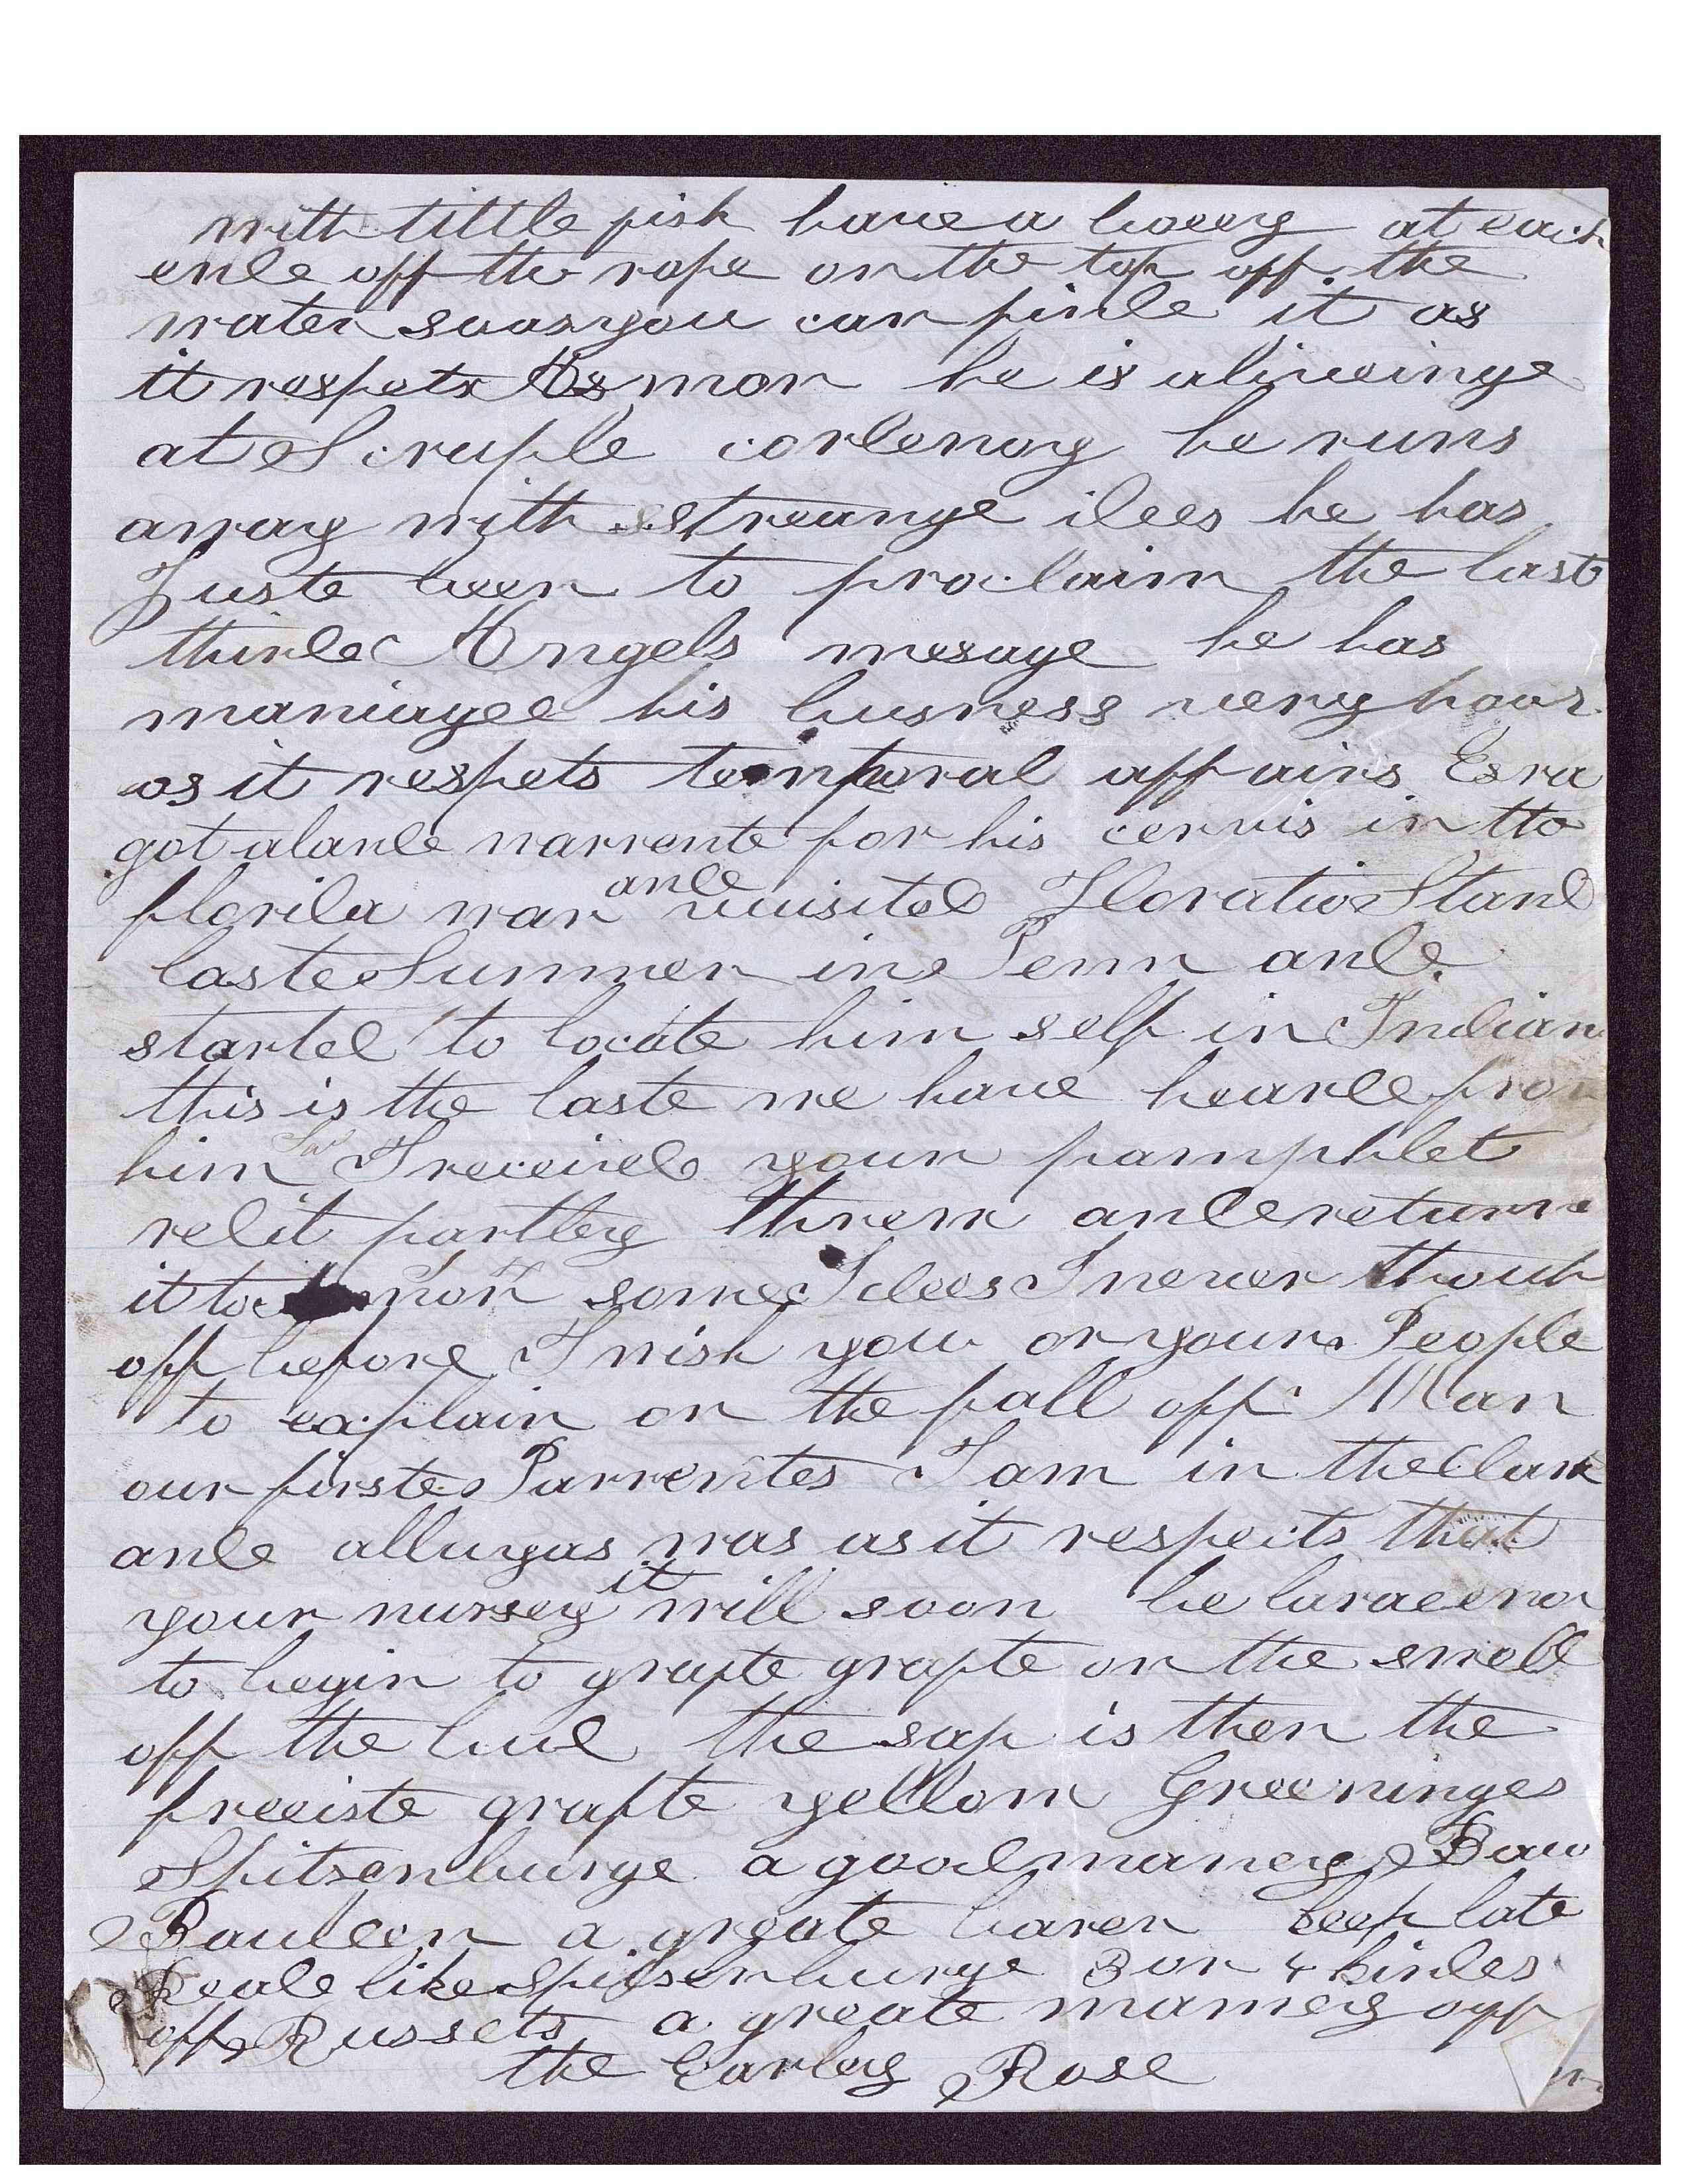 with little fish have a boeey at each
ende off the rope on the top off the
water soas you can finde it as
it respets Asmon he is aliveinge
at Scruple cordenoy he runs
away with streange idees he has
Juste been to proclaim the last
thirde Angels mesage he has
maniaged his busness very poor
as it respets temporal affairs Esra
got a lande warrente for his cervis in the
florida war and visited Horatio Stand
laste Summer in Penn and
started to locate him self in Indian
this is the laste we have hearde from
him I received your pamphlet
red it partley threw and return
it to some Idees I never thouh
off before I wish you or your People
to explain on the fall off Man
our firste Parrentes I am in the dark
and allwyas was as it respects that
your nursey it will soon be large eno
to begin to grafte grafte on the swell
off the bud the sap is then the
freeiste grafte yellow Greeninges
Spitsenburge a good maney Baw
Baulden a greate barer keep late
Reade like Spitsenburge 3 or 4 kindes
off Russets a greate maney off
the Earley Rose